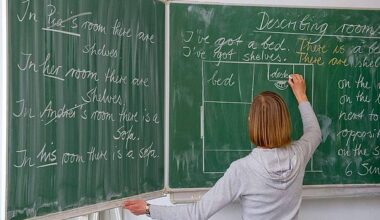 In Pea's room there are
shelves
In her room there are
shelves
In Andrei's room there is a
sofa.
In his room there is a sofa.
Describing rooms
I've got a bed. There is a be
I've got shelves. There are shelv
bed
desk
on the
on the
next to
opposi
on the
6 Sin